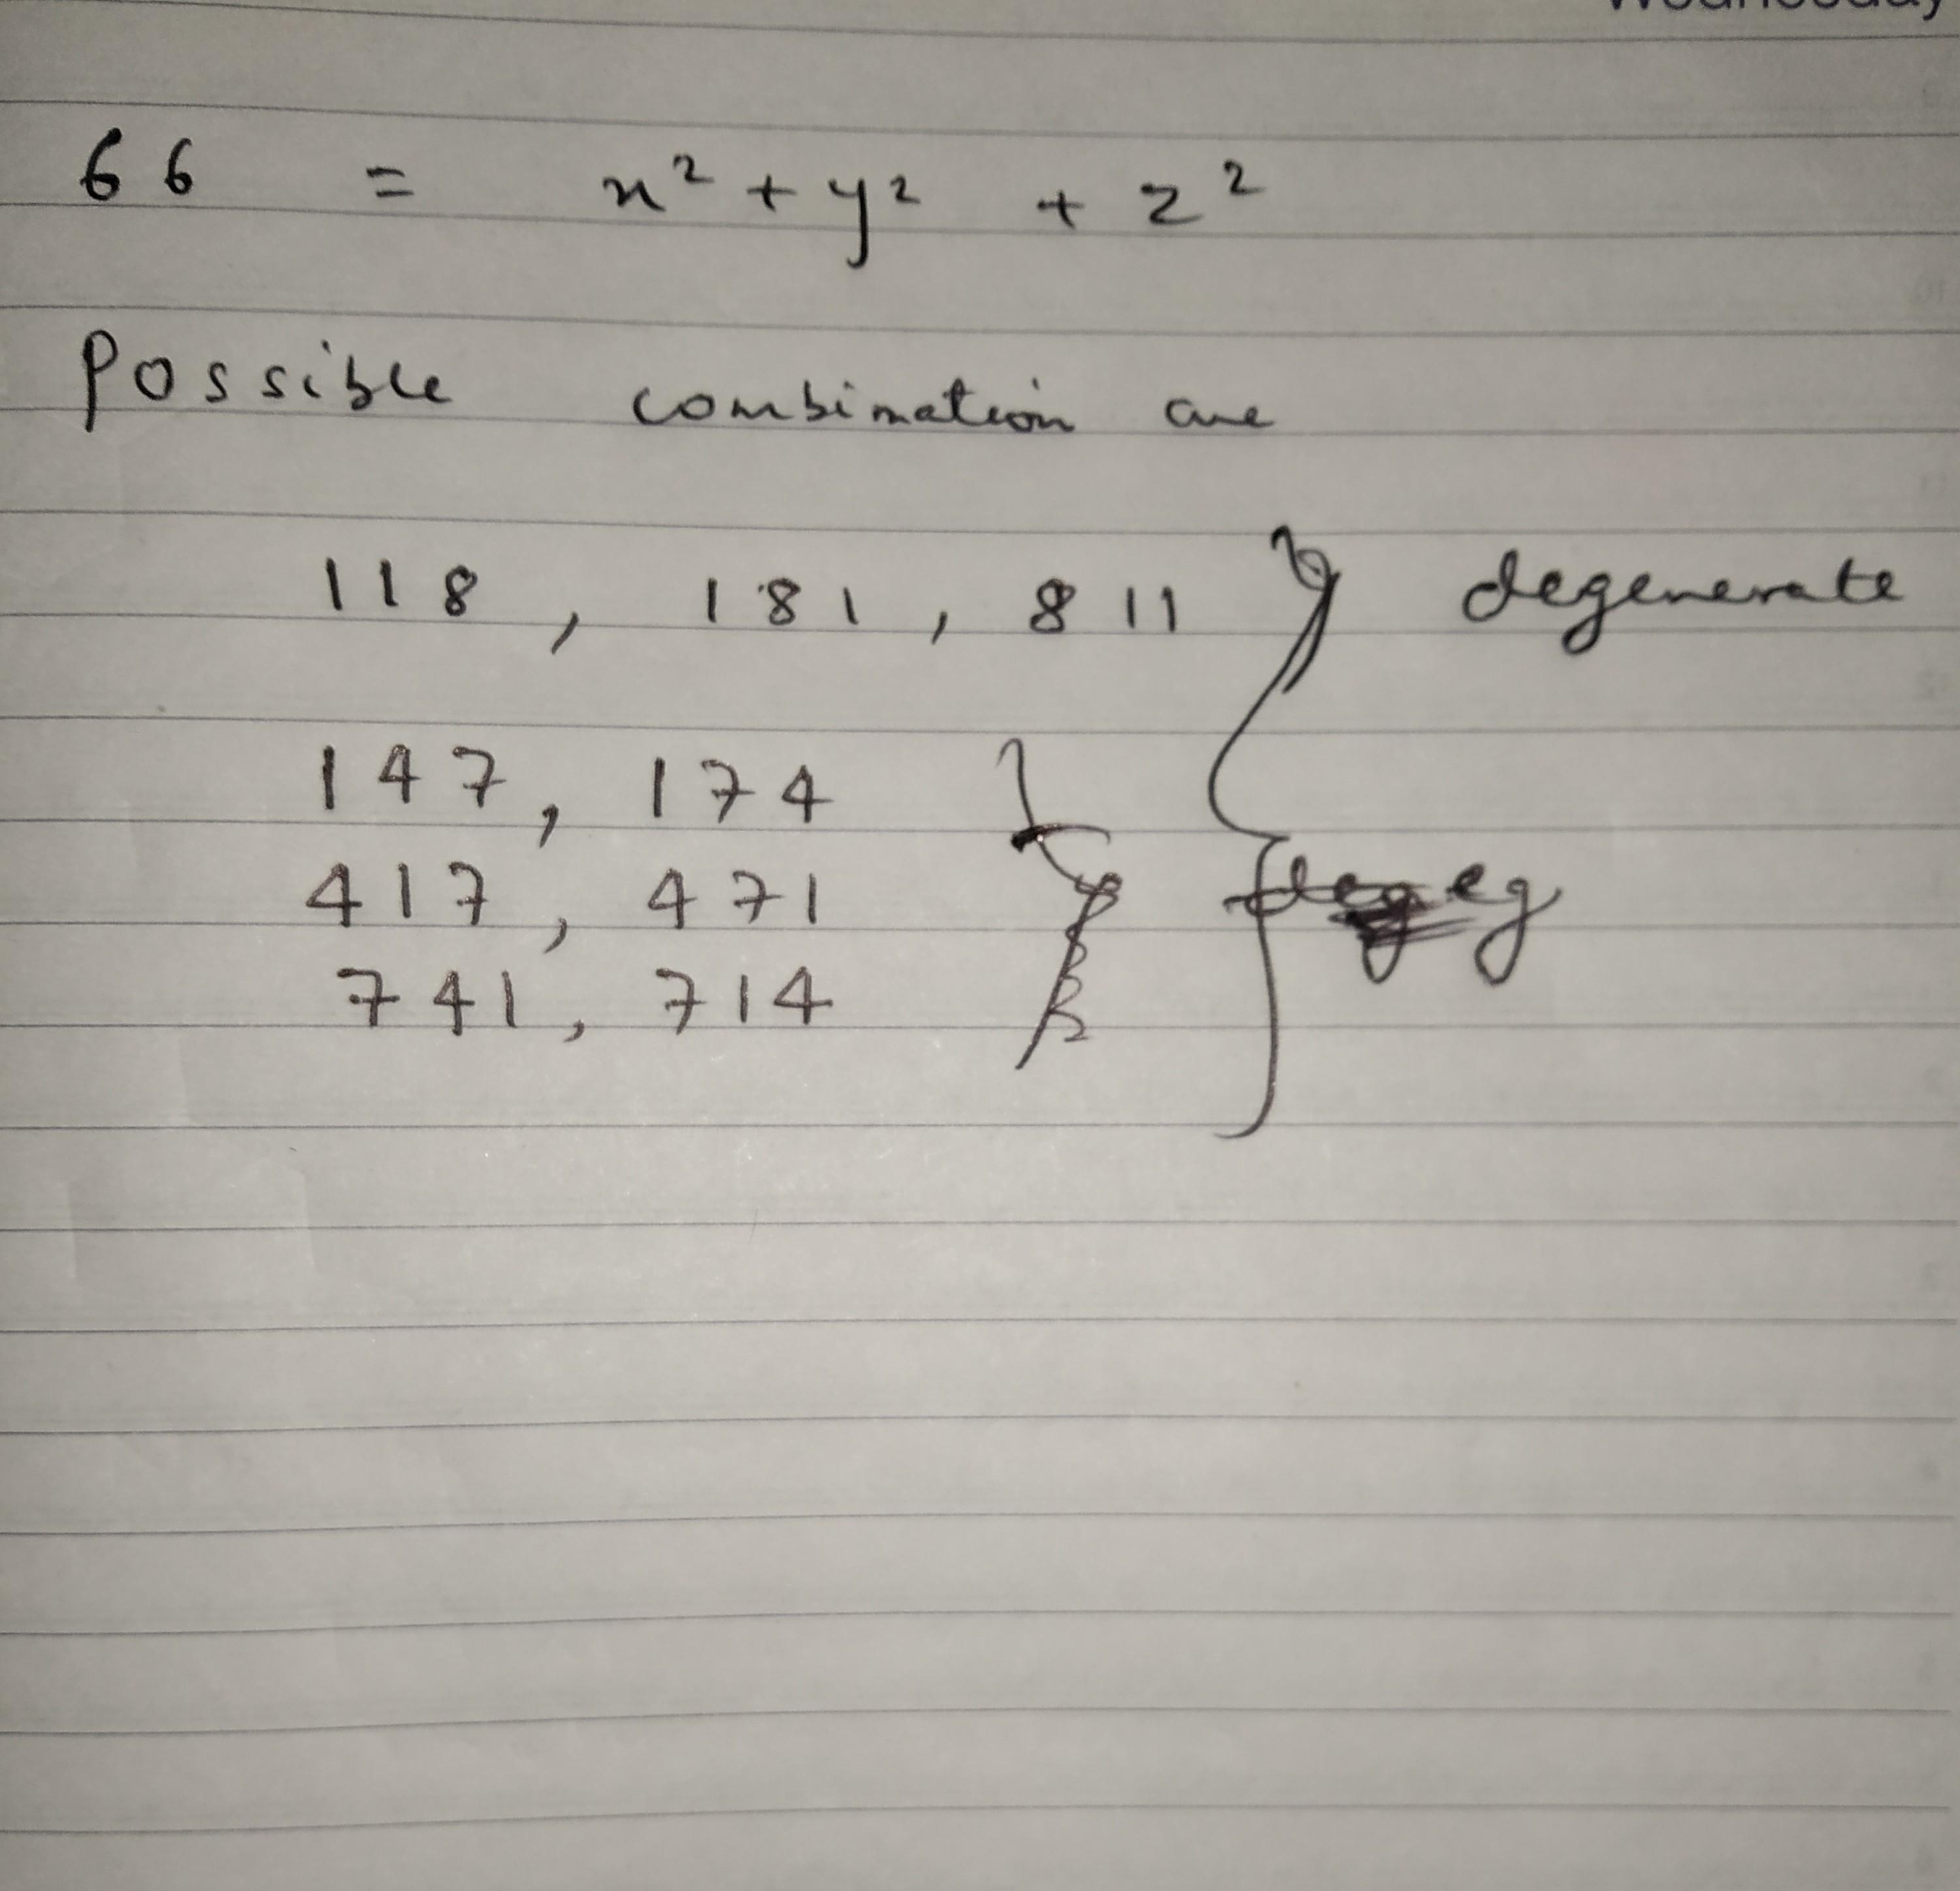 Wednesday
66 = x² + y² + z²
Possible combination are
118, 181, 811 } degenerate
147, 174
417, 471
741, 714